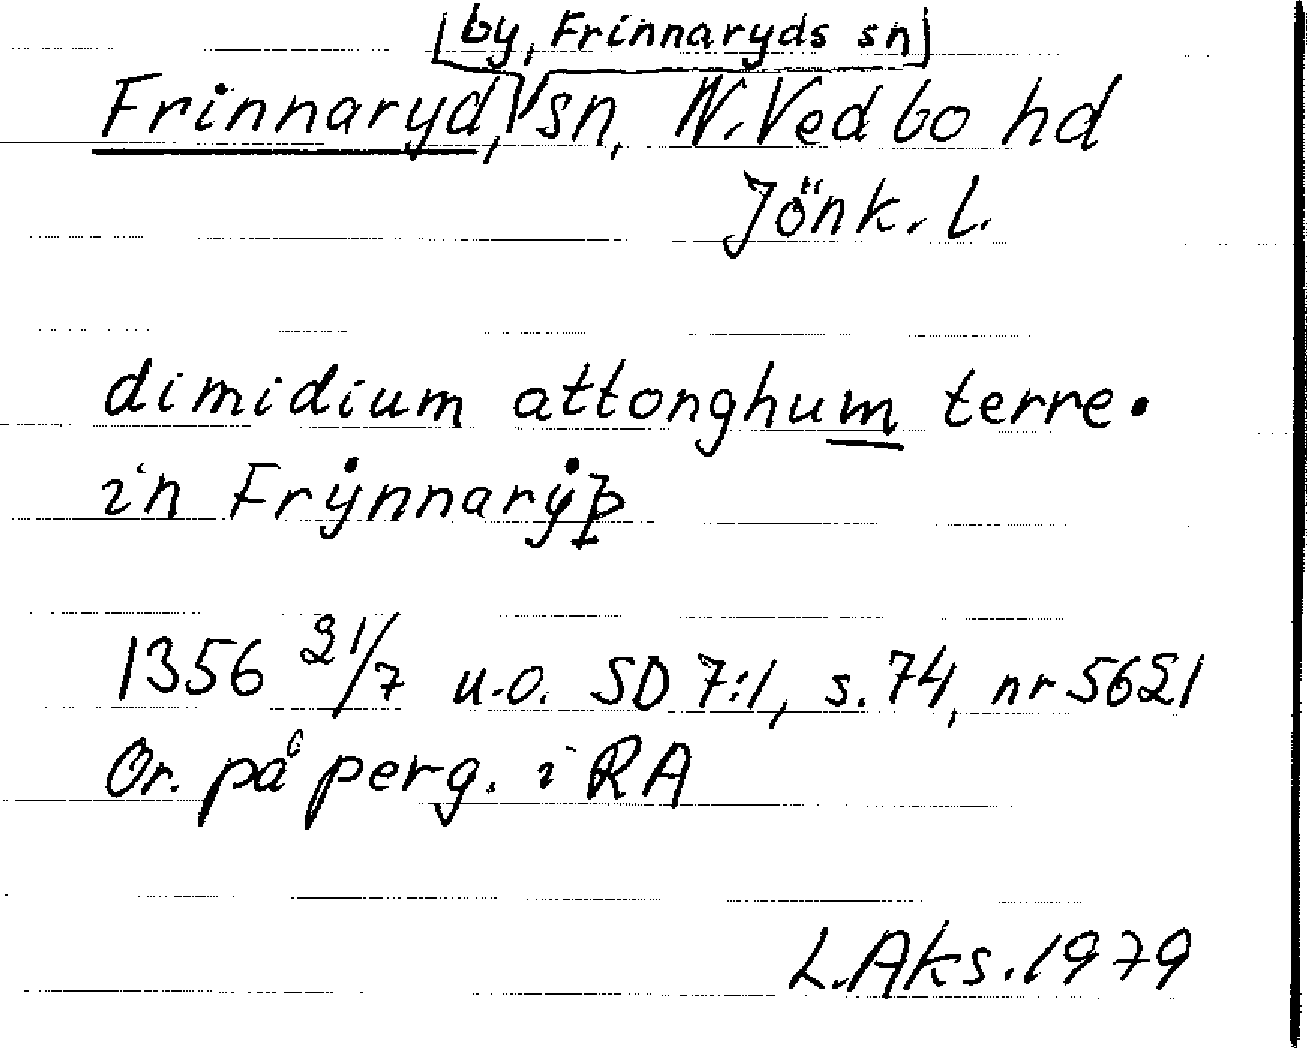 by, Frinnaryds sn
Frinnaryd, sn, N. Vedbo hd
Jönk. l.
dimidium attonghum terre.
in Frẏnnarẏþ
1356 21/7 u.o. SD 7:1, s. 74, nr 5621
Or. på perg. i RA
L. Aks. 1979